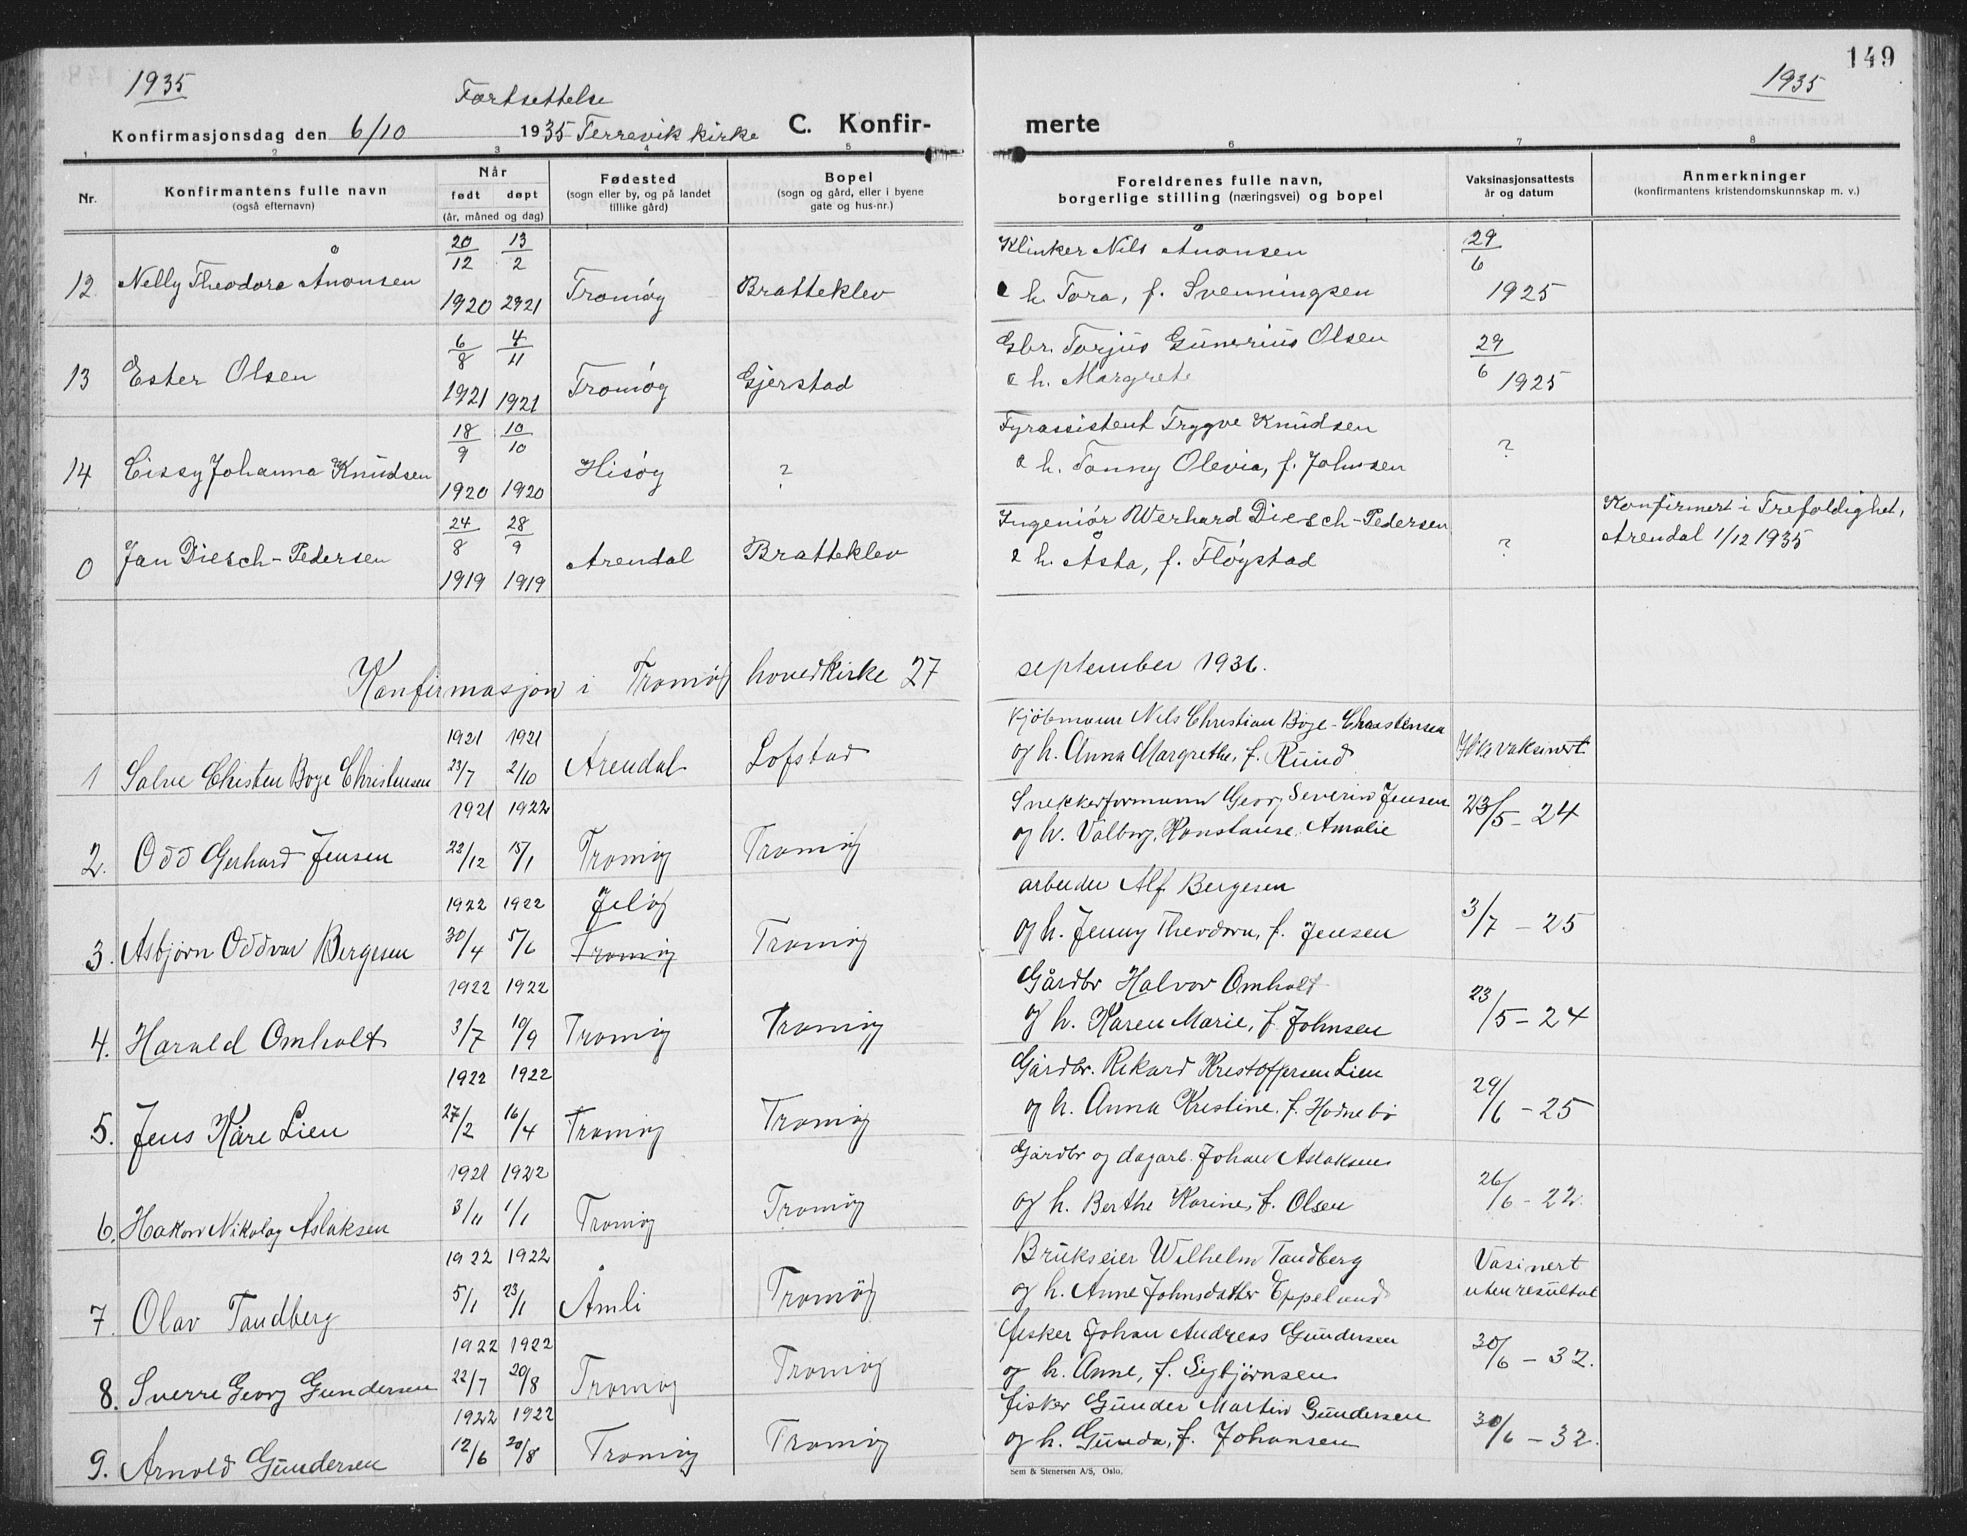 149
1935
1935
Fortsettelse
Konfirmasjonsdag den 6/10 1935 Færevik kirke C. Konfir- merte
1 2 3 4 5 6 7 8
Nr. Konfirmantens fulle navn (også efternavn) Når født døpt (år, måned og dag) Fødested (sogn eller by, og på landet tillike gård) Bopel (sogn og gård, eller i byene gate og hus-nr.) Foreldrenes fulle navn, borgerlige stilling (næringsvei) og bopel Vaksinasjonsattests år og datum Anmerkninger (konfirmantens kristendomskunnskap m. v.)
20/12 13/2 Klinker Nils Ånonsen 29/6
12 Nelly Theodora Ånonsen 1920 1921 Tromøy Bratteklev & h. Tora, f. Svenningsen 1925
6/8 4/11 Gbr. Torjus Gunerius Olsen 29/6
13 Ester Olsen 1921 1921 Tromøy Gjerstad & h. Margrete 1925
18/9 10/10 Fyrassistent Trygve Knudsen
14 Cissy Johanna Knudsen 1920 1920 Hisøy ? & h. Tonny Olevia, f. Johnsen ?
24/8 28/9 Ingeniør Werhard Diesch-Pedersen Konfirmert i Trefoldighet,
0 Jan Diesch-Pedersen 1919 1919 Arendal Bratteklev & h. Åsta, f. Fløystad ? Arendal 1/12 1935
Konfirmasjon i Tromøy hovedkirke 27 september 1936.
1921 1921 Kjøbmann Nils Christian Boye-Christensen
1 Salve Christen Boye Christensen 23/7 2/10 Arendal Lofstad og h. Anna Margrethe, f. Ruud Ikke vaksinert
1921 1922 Snekkerformann Georg Severin Jensen
2. Odd Gerhard Jensen 22/12 15/1 Tromøy Tromøy og h. Valborg Konstanse Amalie 23/5 - 24
1922 1922 Jeløy arbeider Alf Bergesen
3. Asbjørn Oddvar Bergesen 30/4 5/6 Tromøy Tromøy og h. Jenny Theodora, f. Jensen 3/7 - 25
1922 1922 Gårdbr Halvor Omholt
4. Harald Omholt 3/7 10/9 Tromøy Tromøy og h. Karen Marie, f. Johnsen 23/5 - 24
1922 1922 Gårdbr. Rikard Kristoffersen Lien
5. Jens Kåre Lien 27/2 16/4 Tromøy Tromøy og h. Anna Kristine, f. Hodnebø 29/6 - 25
1921 1922 Gårdbr og dagarb. Johan Aslaksen
6. Hakon Nikolay Aslaksen 3/11 1/1 Tromøy Tromøy og h. Berthe Karine, f. Olsen 26/6 - 22.
1922 1922 Brukseier Wilhelm Tandberg Vasinert
7. Olav Tandberg 5/1 23/1 Åmli Tromøy og h. Anne Johnsdatter Eppeland uten resultat
1922 1922 fisker Johan Andreas Gundersen
8. Sverre Georg Gundersen 22/7 20/8 Tromøy Tromøy og h. Anne, f. Sigbjørnsen 30/6 - 32.
1922 1922 fisker Gunder Martin Gundersen
9. Arnold Gundersen 12/6 20/8 Tromøy Tromøy og h. Gunda, f. Johansen 30/6 - 32.
Sem & Stenersen A/S, Oslo.